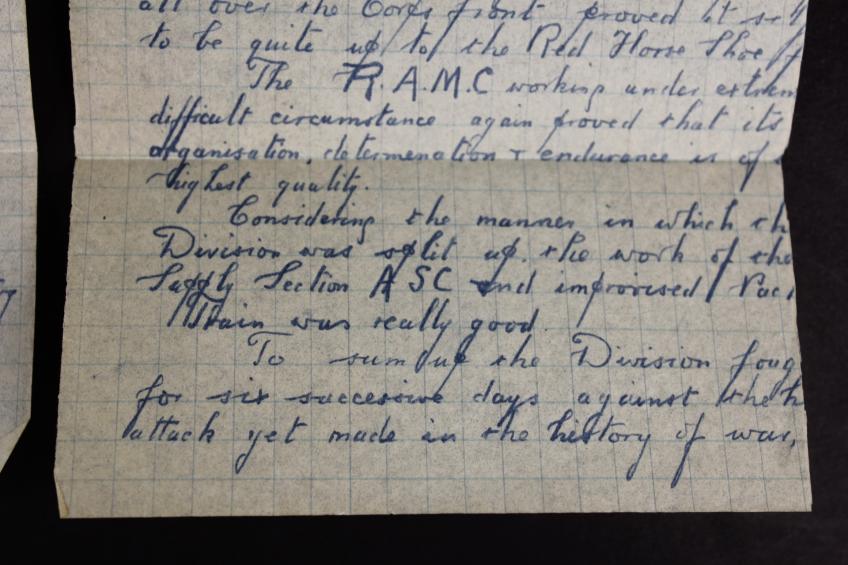 all over the Corps front proved it
to be quite up to the Red Horse Shoe
The R.A.M.C working under extrem
difficult circumstance again proved that its
organisation, determenation + endurance is of
highest quality.
Considering the manner in which th
Division was split up. the work of the
Supply Section ASC and improvised Pac
Train was really good.
To sum up the Division foug
for six successive days against the h
attack yet made in the history of war,